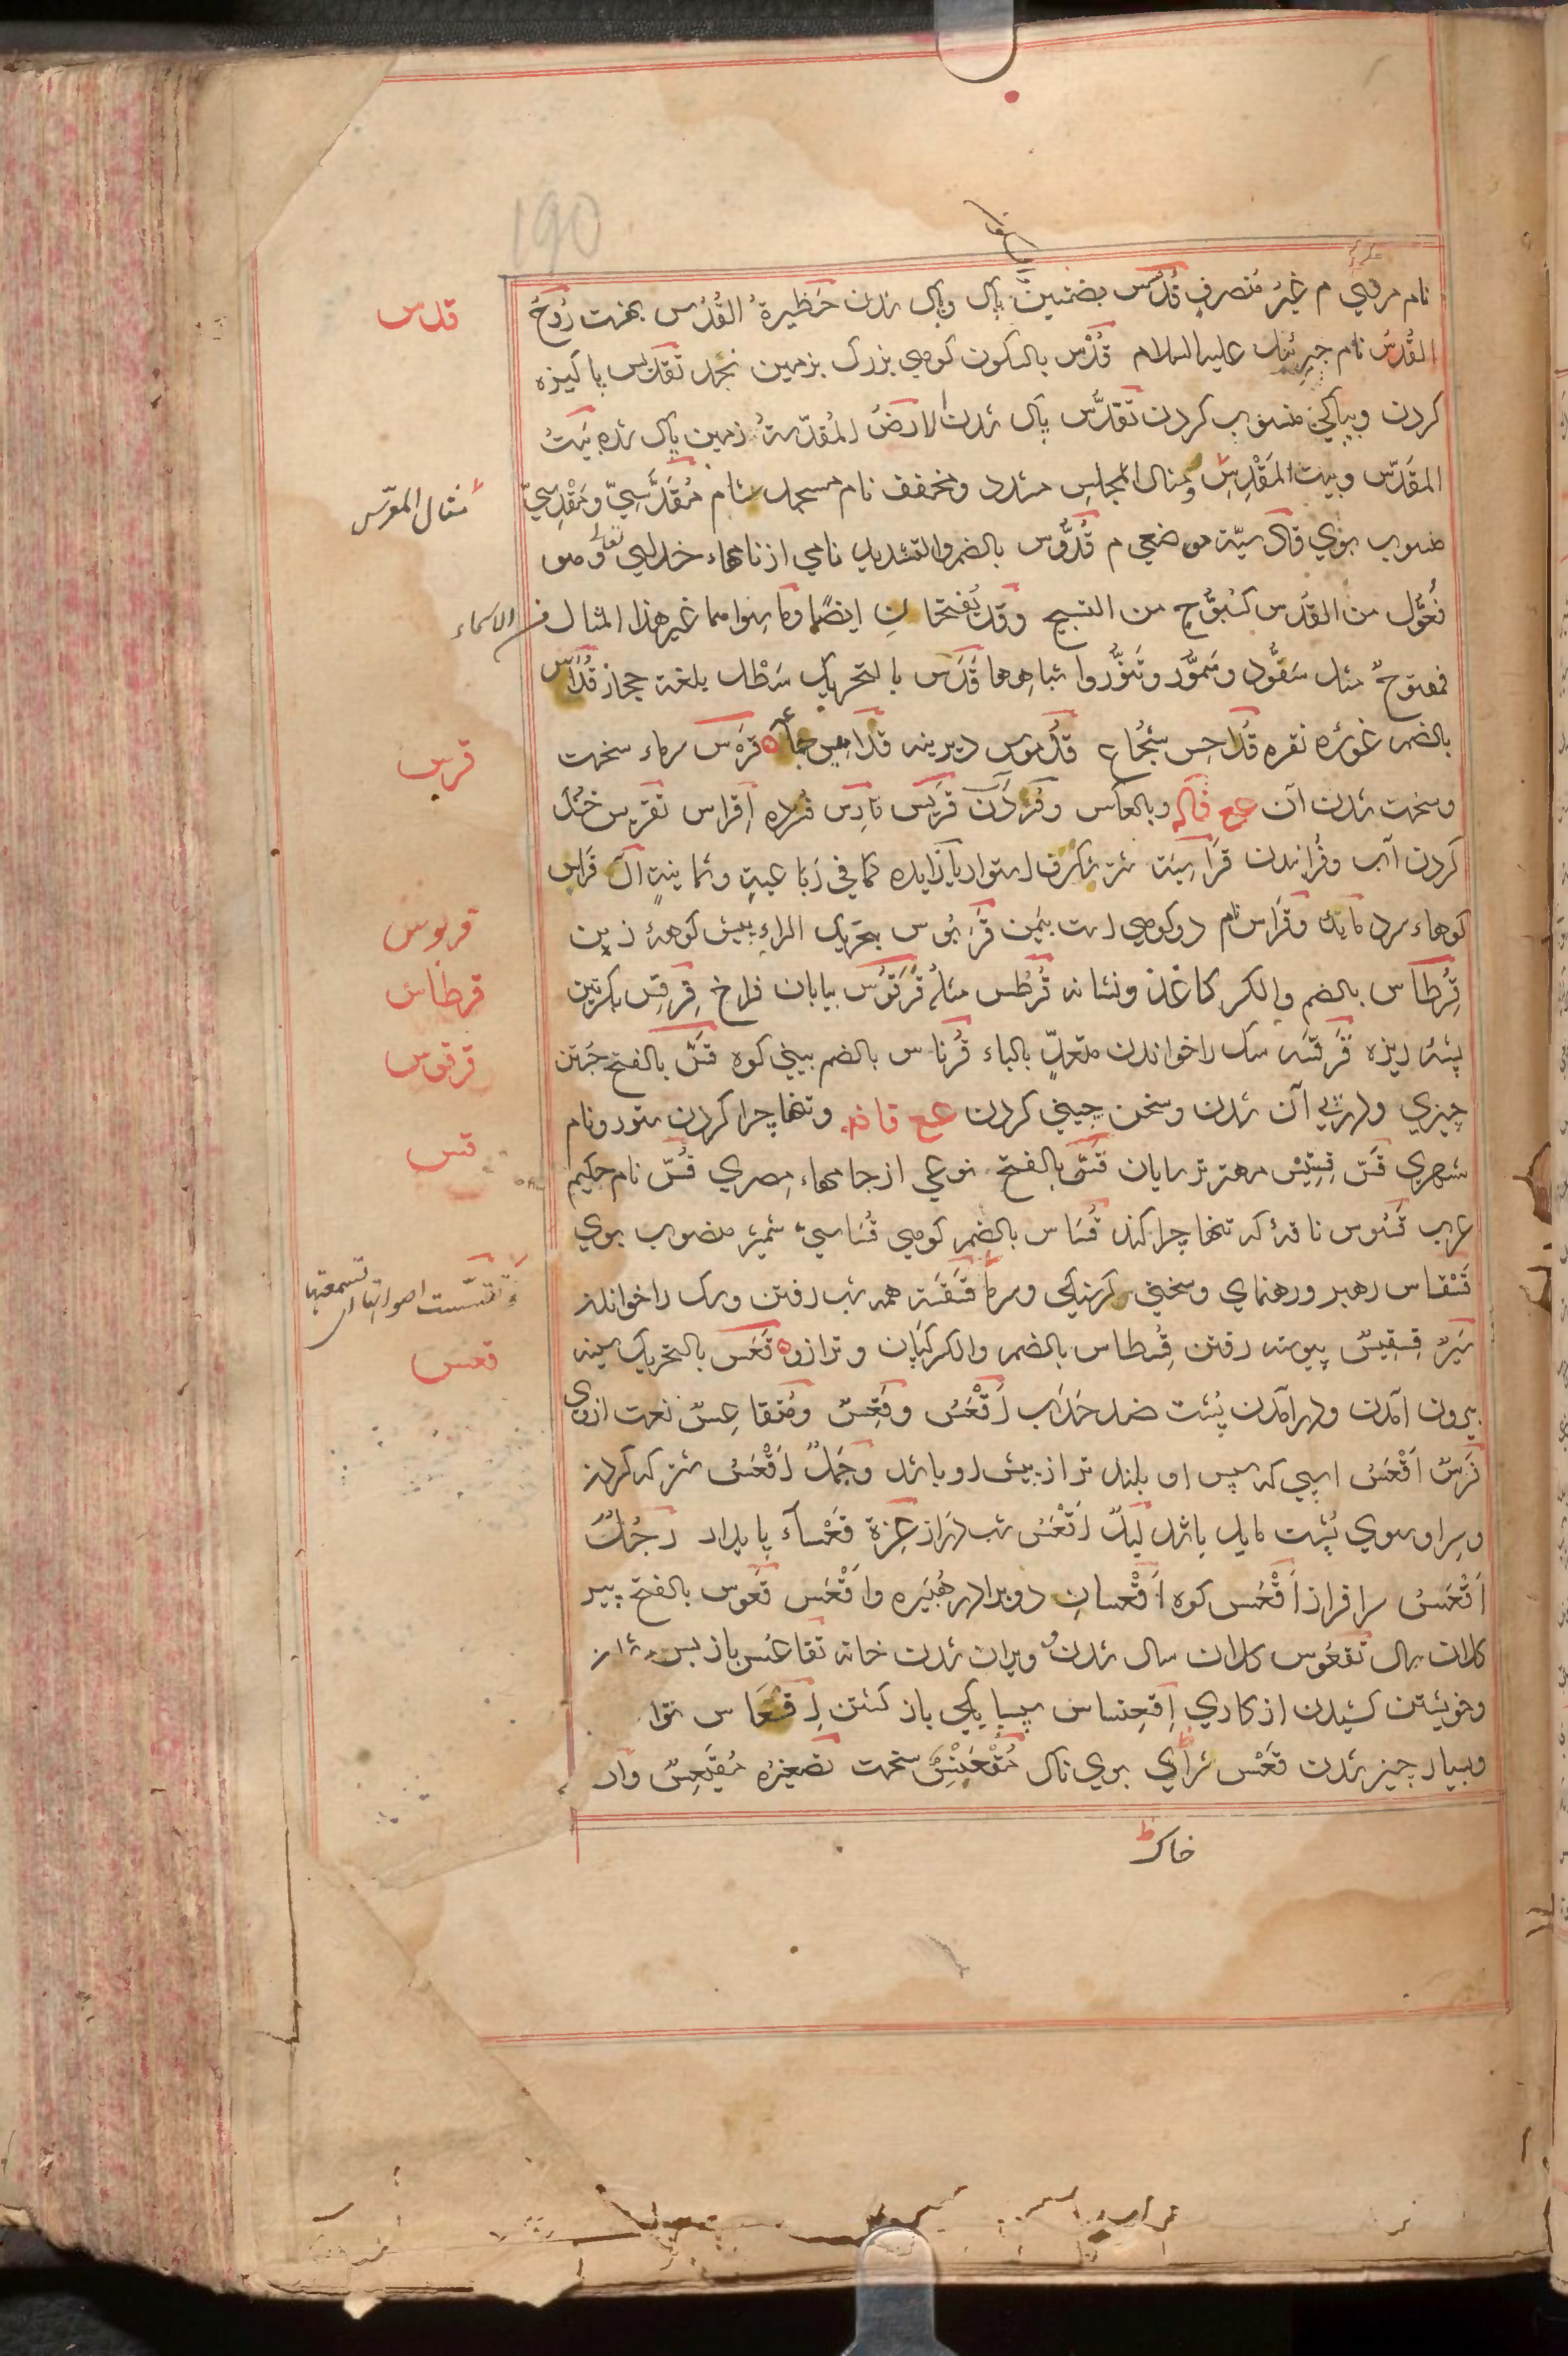 190
نام مردی م غیرُ مُنصرفٍ قُدُس بضمتین پاک وپاک شدن حَظیرةُ القُدُس بهشت رُوحُ
القُدُسُ نام جبرئیل علیه السلام قُدْس بالسکون کوهی بزرگ بزمین نجد تقدیس پاکیزه
کردن وبپاکی منسوب کردن تَقدُّس پاک شدن الارضُ المُقدّسةُ زمین پاک شده بَیتُ
المقَدّس وبیت المَقْدِس ومثال المجلس مشدد ومخفف نام مسجد شام مُقدَّسِیّ ومَقْدِسِیّ
منسوب بوی قادسیّة موضعی م قُدُّوس بالضم والتشدید نامی از نامهاء خدای تعالی وهو
فُعُّول من القُدس کسُبُّوحٍ من التسبیح وقد یُفتحانِ ایضًا وماسواهما غیر هذا المثال من الاسماء
فمفتوحٌ مثل سَفُّود وسَمُّور وتَنُّور وا شباهها قَدَس بالتحریک سَطْل بلغة حجاز قُدَاس
بالضم غوزه نقره قُداحِس شُجاع قُدموس دیرینه قدامیس جماعة قَرس سرماء سخت
وسخت شدن آن ع ع فاکه وبالعکس وفسردن قَریس قارِس فسرده اِقراس تقریس خنک
کردن آب وفسراندن قُراسیَة شتر شگرف استوار یا زایده کما فی رَباعیةٍ وثمانیةٍ آل قَراس
کوهاء سرد مایک وقراس نام دو کوهی است بیَمن قَرَبُوس بتحریک الراء پیش کوههٔ زین
قِرُطاس بالضم والکسر کاغذ ونشانه قُرطُس مثلهُ قَرَقُوس بیابان فراخ قِرقِس بکسرتین
پشهٔ ریزه قَرقسَه سگ را خواندن متعدٍّ بالباء قُرناس بالضم بینی کوه قَسّ بالفتح جُستن
چیزی ودر پی آن شدن وسخن چینی کردن ع ع قافه وتنها چرا کردن ستور ونام
شهری قَسّ قِسِّیْس مهتر ترسایان قَسّیّ بالفتح نوعی از جامهاء مصری قُسّ نام حکیم
عرب قَسُوس ناقهٔ که تنها چرا کند قُسَاس بالضم کوهی قُسَاسیّ شمشیر منسوب بوی
قَسْقاس رهبر ورهنمای وسختی گرسنگی وسرما قَسقَسَة همه شب رفتن وسگ را خواندن
سَیرٌ قِسقِیسٌ پیوسته رفتن قِسُطاس بالضم والکسر کپان وترازو قَعَس بالتحریک سینه
بیرون آمدن ودر آمدن پُشت ضد حَدَب اَقْعَسُ وقَعِسٌ ومُتَقاعِسٌ نعت ازوی
فَرَسٌ اَقْعَسُ اسپی که پس او بلند تر از پیش او باشد وجَمَلٌ اَقْعَسُ شتر که گردن
وسر او سوی پُشت مایل باشد لَیلٌ اَقْعَسُ شب دراز عِزّة قَعْسآءُ پایدار رَجُلٌ
اَقْعَسُ سرافراز اَقْعَس کوه اَقْعسانِ دو برادر هُبَیره واَقْعَس قَعْوس بالفتح پیر
کلان سال تَقَعْوُس کلان سال شدن وویران شدن خانه تقاعُس باز پس شدن
وخویشتن کشیدن از کاری اِقعِنساس سپسایگی باز گشتن اِقعَاس توا
وبسیار چیز شدن قَعْس شرای بوی ناک مُقْعَنْسِسٌ سخت تصغیرُه مُقَیعِسٌ وان
خاک
قدس
مثال الموسّس
قرس
قربوس
قرطاس
قرقوس
قس
وتَقَسَّست اصواتهم تسمعتها
قعس